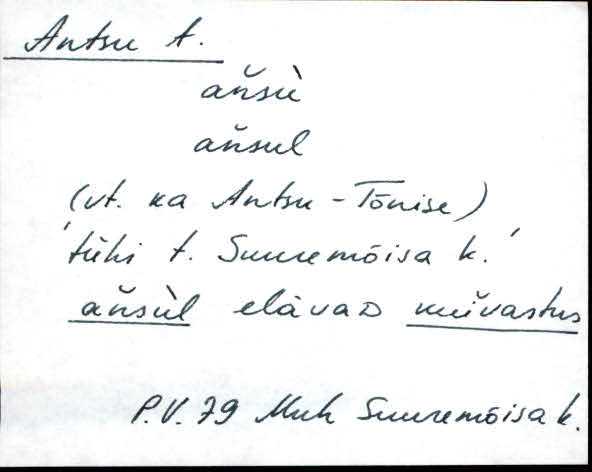 Antsu t.
ańsù
ańsul
(vt. ka Antsu-Tõnise)
'tühi t. Suuremõisa k.'
ańsùl elàvaD
P.V. 79 Muh Suuremõisa k.